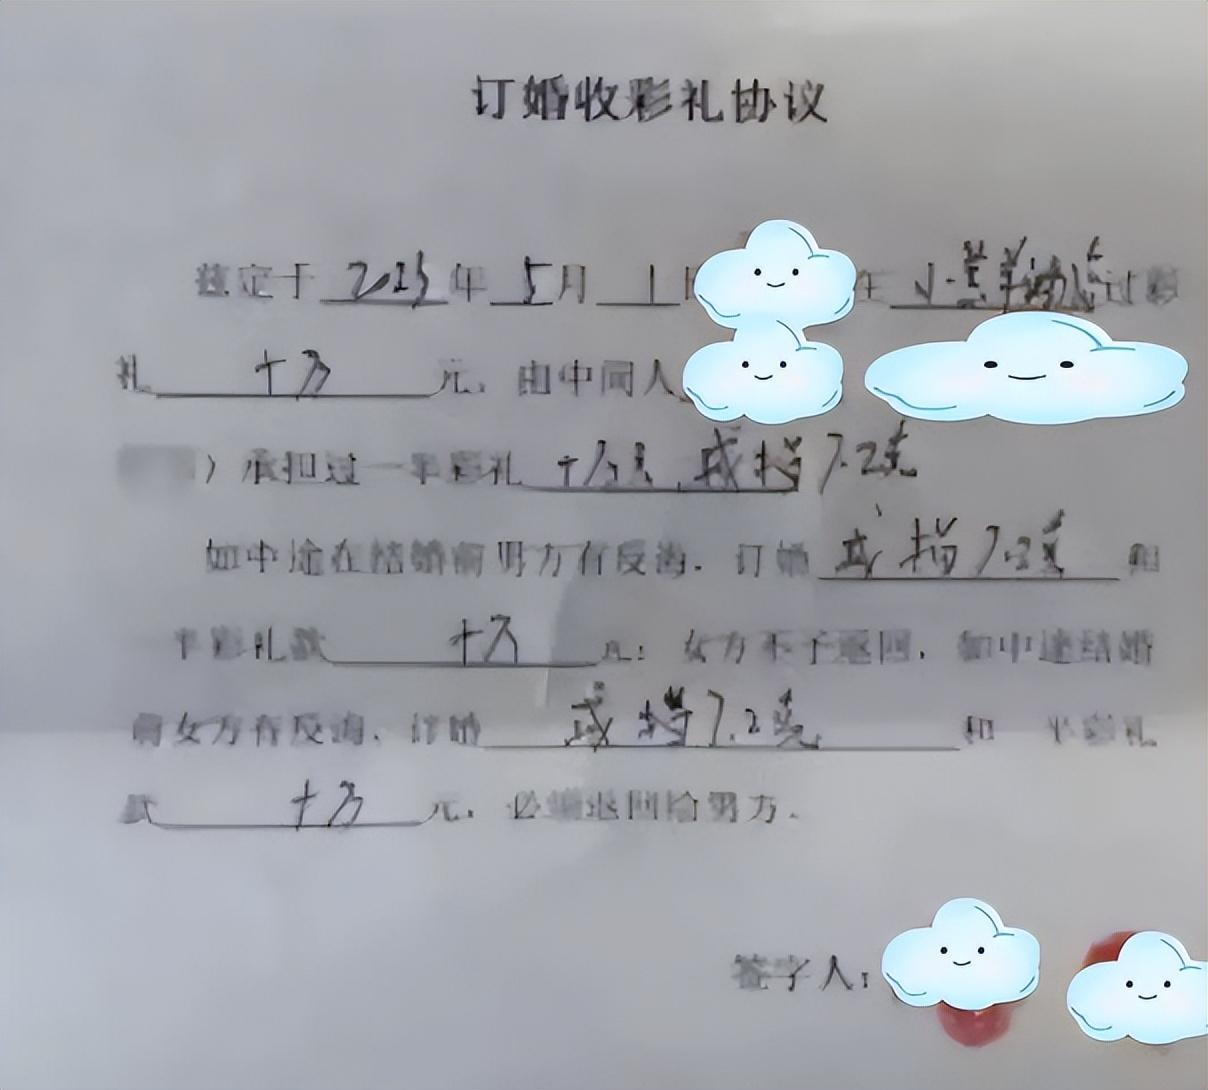 订婚收彩礼协议
兹定于 2023年 5月 1日 在 过彩
礼 十万 元，由中间人
）承担过一半彩礼 十万元 戒指7.2克
如中途在结婚前男方有反海，订婚 戒指7.2克 和
半彩礼款 十万 元；女方不予返回，如中途结婚
前女方有反海，订婚 戒指7.2克 和 半彩礼
款 十万 元，必须退回给男方。
签字人：